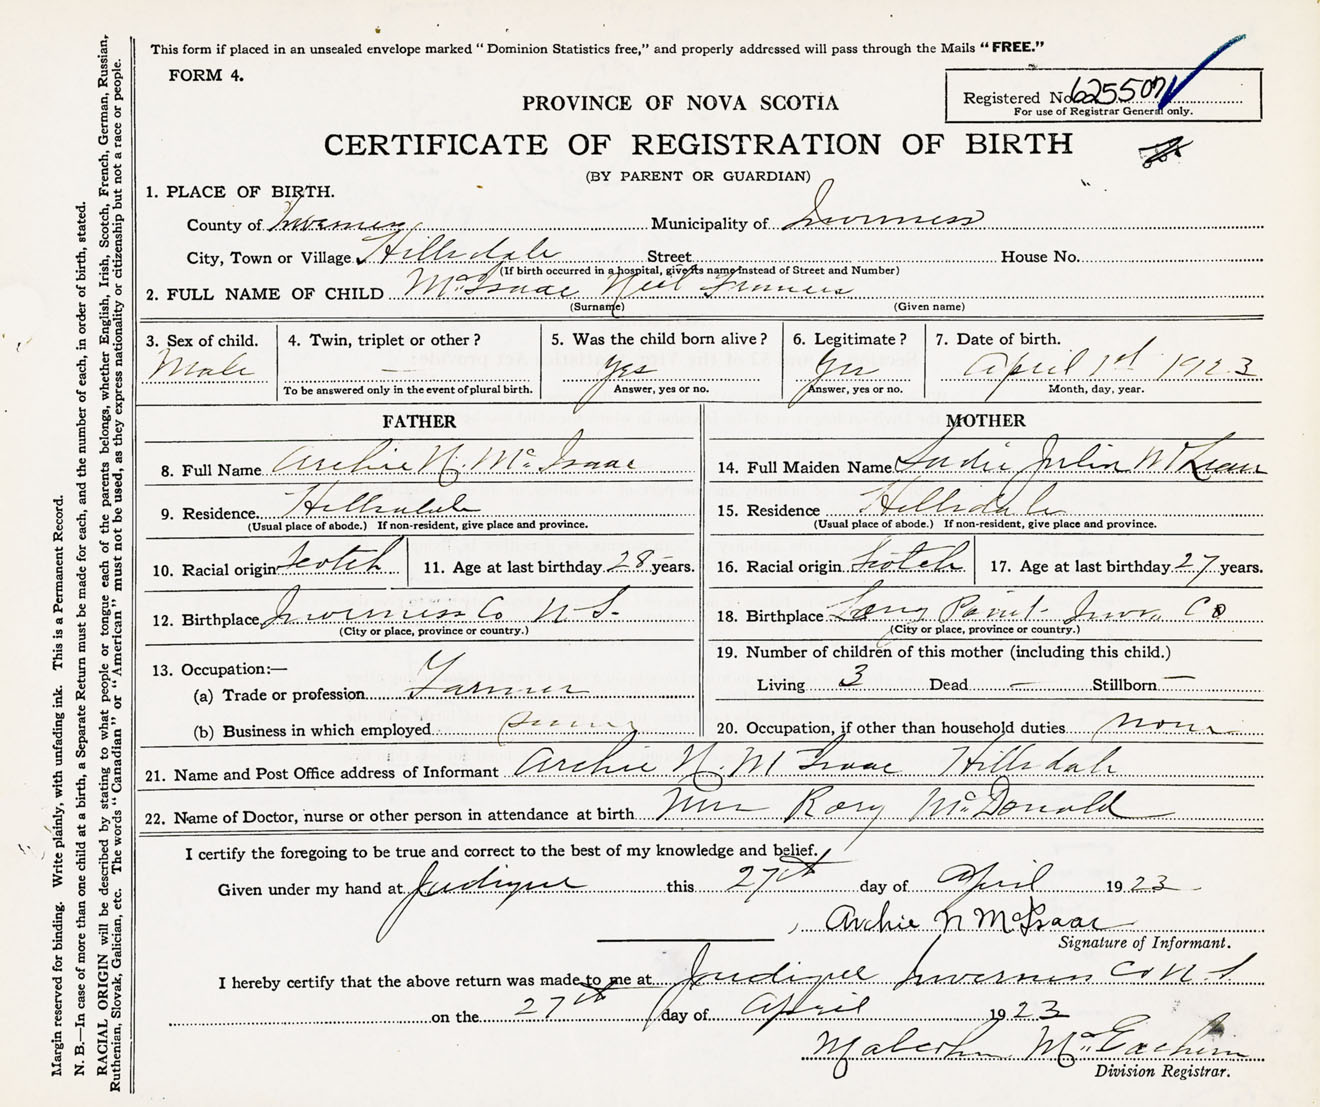 This form if placed in an unsealed envelope marked "Dominion Statistics free," and properly addressed will pass through the Mails "FREE."
FORM 4.
Registered No. 625507
For use of Registrar General only.
PROVINCE OF NOVA SCOTIA
CERTIFICATE OF REGISTRATION OF BIRTH
(BY PARENT OR GUARDIAN)
1. PLACE OF BIRTH.
County of Inverness Municipality of Inverness
City, Town or Village Hillsdale Street House No.
(If birth occurred in a hospital, give its name instead of Street and Number)
2. FULL NAME OF CHILD McIsaac Neil Francis
(Surname) (Given name)
3. Sex of child. 4. Twin, triplet or other? 5. Was the child born alive? 6. Legitimate? 7. Date of birth.
Male — Yes Yes April 1st 1923
To be answered only in the event of plural birth. Answer, yes or no. Answer, yes or no. Month, day, year.
FATHER
8. Full Name Archie N. Mc Isaac
9. Residence Hillsdale
(Usual place of abode.) If non-resident, give place and province.
10. Racial origin Scotch 11. Age at last birthday 28 years.
12. Birthplace Inverness Co N.S.
(City or place, province or country.)
13. Occupation:—
(a) Trade or profession Farmer
(b) Business in which employed
MOTHER
14. Full Maiden Name Sadie Julia McLean
15. Residence Hillsdale
(Usual place of abode.) If non-resident, give place and province.
16. Racial origin Scotch 17. Age at last birthday 27 years.
18. Birthplace Long Point Inver. Co
(City or place, province or country.)
19. Number of children of this mother (including this child.)
Living 3 Dead — Stillborn —
20. Occupation, if other than household duties none
21. Name and Post Office address of Informant Archie N. McIsaac Hillsdale
22. Name of Doctor, nurse or other person in attendance at birth Rory McDonald
I certify the foregoing to be true and correct to the best of my knowledge and belief.
Given under my hand at Judique this 27th day of April 1923
Archie N McIsaac
Signature of Informant.
I hereby certify that the above return was made to me at Judique Inverness Co N.S
on the 27th day of April 1923
Malcolm McEachern
Division Registrar.
Margin reserved for binding. Write plainly, with unfading ink. This is a Permanent Record.
N. B.—In case of more than one child at a birth, a Separate Return must be made for each, and the number of each, in order of birth, stated.
RACIAL ORIGIN will be described by stating to what people or tongue each of the parents belongs, whether English, Irish, Scotch, French, German, Russian,
Ruthenian, Slovak, Galician, etc. The words "Canadian" or "American" must not be used, as they express nationality or citizenship but not a race or people.